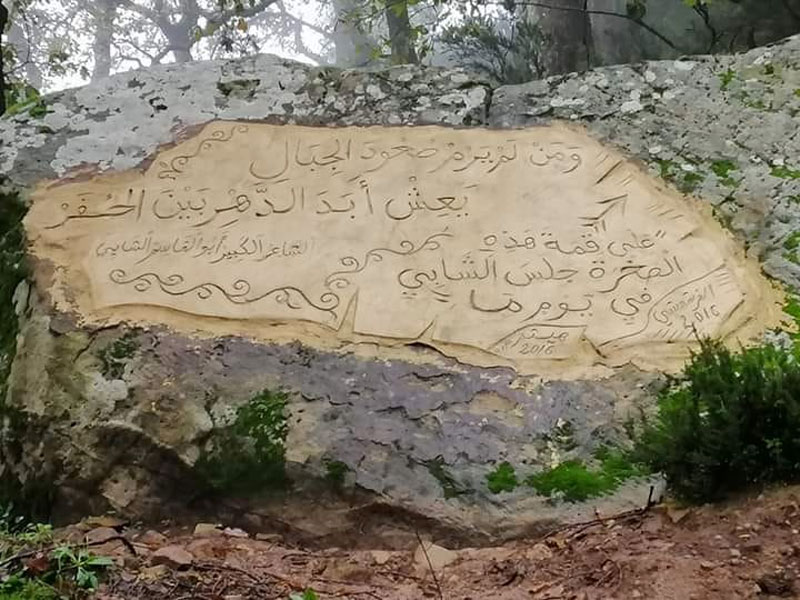 وَمَن لَم يَرُمْ صُعُودَ الجِبَالِ
يَعِشْ أَبَدَ الدَّهْرِ بَيْنَ الحُفَرْ
الشاعر الكبير أبو القاسم الشابي
"على" قمة هذه
الصخرة جلس الشابي
في يوم ما
2016
2016